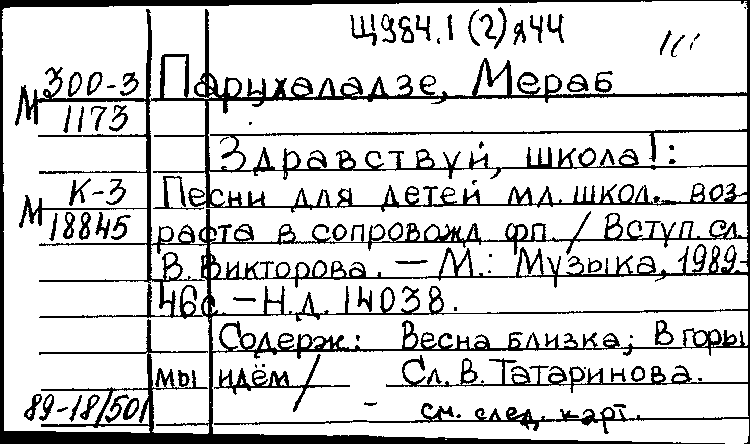 Щ984.1(2)я44
М 300-3 Парцхаладзе, Мераб
1173
Здравствуй, школа!:
М К-3 Песни для детей мл. школ. воз-
18845 раста в сопровожд. фп. / Вступ. сл.
В. Викторова. — М.: Музыка, 1989.-
46с. — Н.д. 14038.
Содерж: Весна близка; В горы
мы идём / Сл. В. Татаринова.
89-18/501 - см. след. карт.